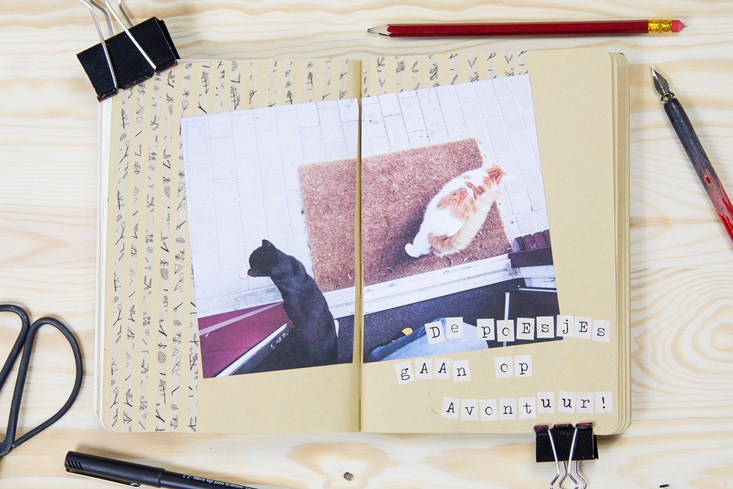 De poEsjEs
gAAn op
Avontuur!